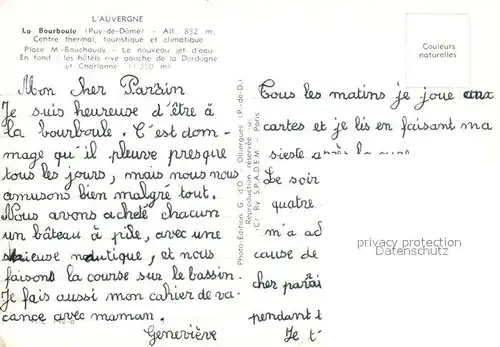 L'AUVERGNE
La Bourboule (Puy-de-Dôme) - Alt. 852 m.
Centre thermal, touristique et climatique
Place M. Bouchaudy - Le nouveau jet d'eau
En fond : les hôtels rive gauche de la Dordogne
et Charlanne (1 250 m)
Couleurs
naturelles
Mon cher Parrain
Je suis heureuse d'être à
la bourboule. C'est dom-
mage qu'il pleuve presque
tous les jours, mais nous nous
amusons bien malgré tout.
Nous avons acheté chacun
un bâteau à pile, avec une
nautique, et nous
faisons la course sur le bassin.
Je fais aussi mon cahier de va-
cance avec maman.
Geneviève
Photo-Edition G. d'O. Olliergues (P.-de-D.)
Reproduction réservée
(C) By S.P.A.D.E.M. - Paris
Tous les matins je joue aux
cartes et je lis en faisant ma
sieste après la cure.
Le soir
quatre
m'a ad
cause de
cher parai
pendant t
Je t'
privacy protection
Datenschutz